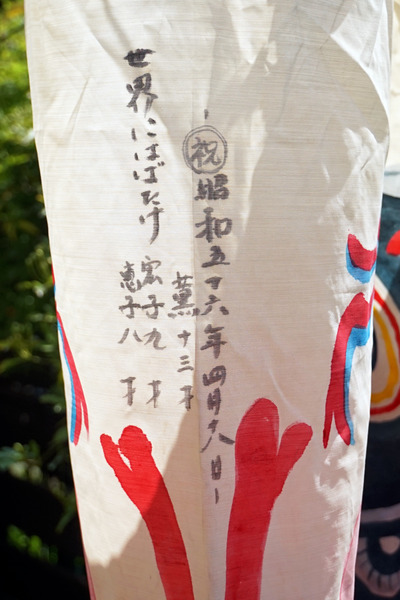 ㊗昭和五十六年四月六日
薫十三才
宏子九才
恵子八才
世界にはばたけ